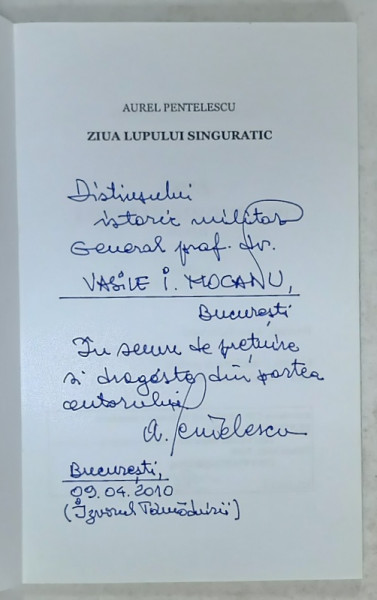 AUREL PENTELESCU
ZIUA LUPULUI SINGURATIC
Distinsului
istoric militar
General prof. dr.
VASILE I. MOCANU,
București
În semn de prețuire
și dragoste din partea
autorului
A. Pentelescu
București,
09.04.2010
(Izvorul Tămăduirii)